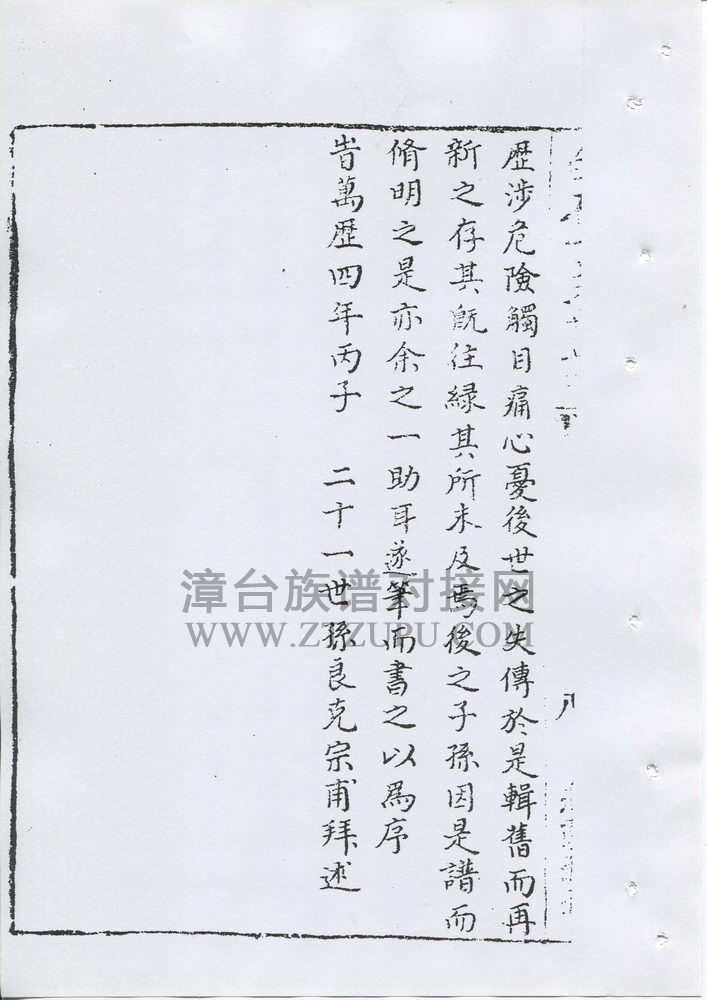 歷涉危險觸目痛心憂後世之失傳於是輯舊而再
新之存其旣往緑其所未及焉後之子孫因是譜而
脩明之是亦余之一助耳遂筆而書之以爲序
旹萬歷四年丙子 二十一世孫良克宗甫拜述
八
漳台族谱对接网
WWW.ZTZUPU.COM